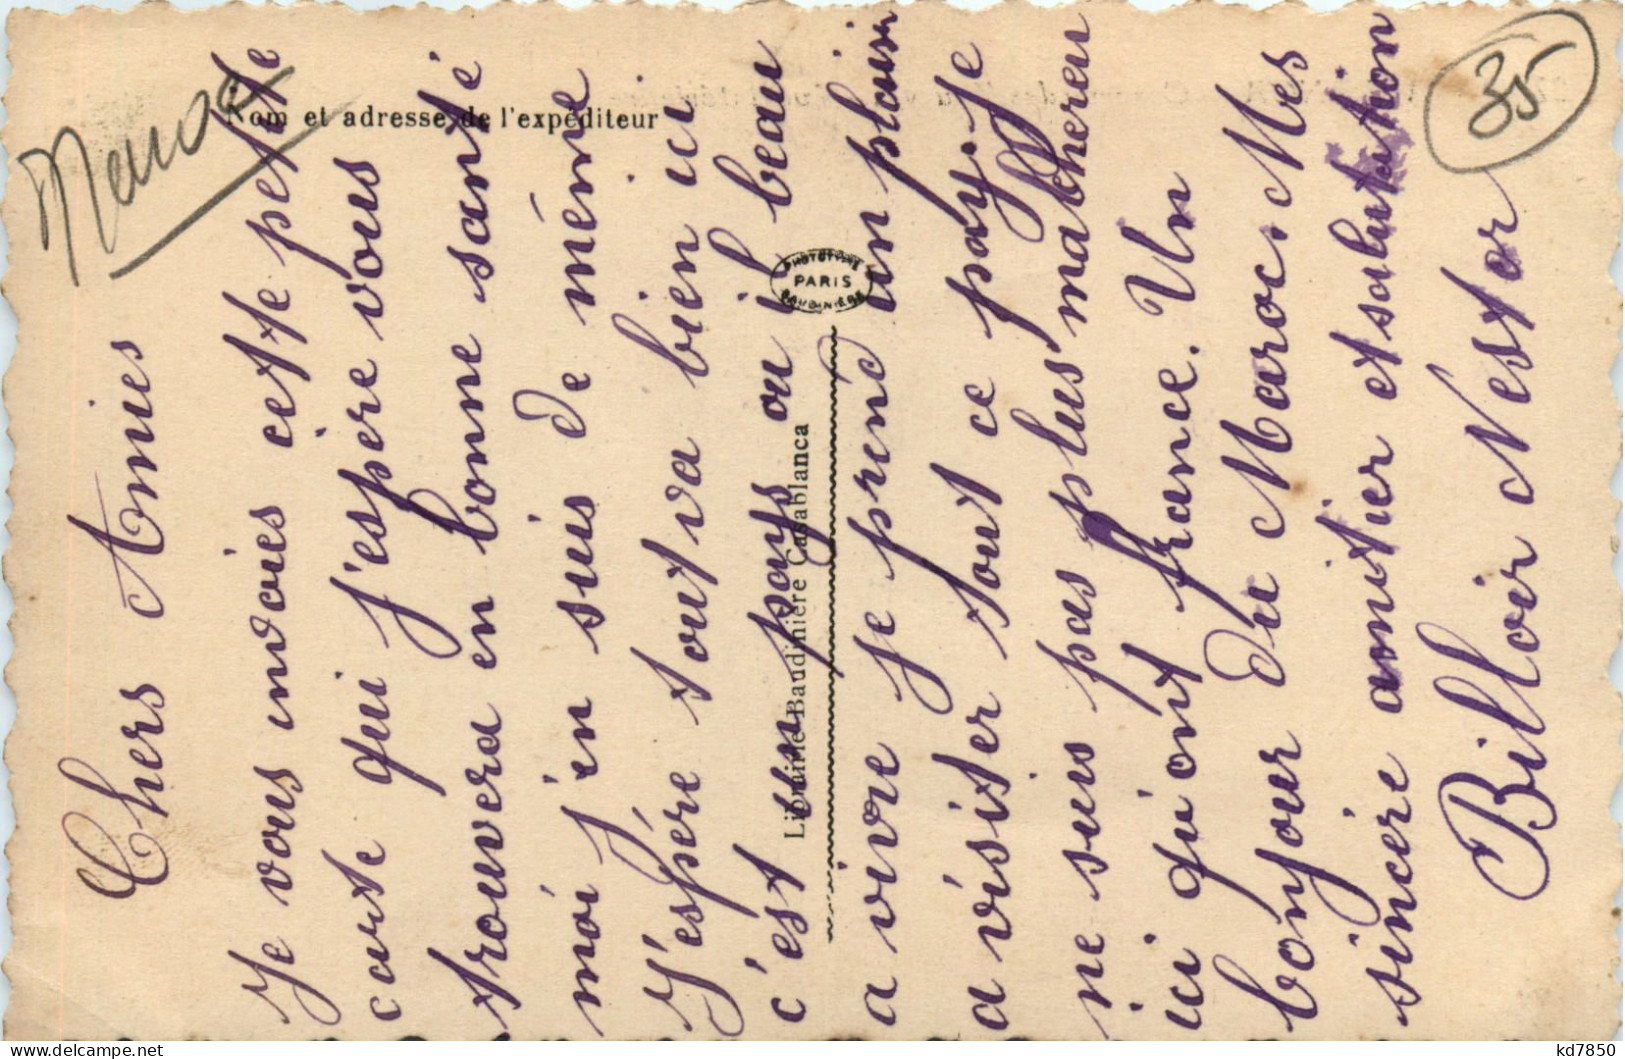 Maroc
35
Nom et adresse de l'expéditeur
PHOTOTYPIE
PARIS
BAUDINIÈRE
Librairie Baudinière Casablanca
Chers Amies
Je vous indoies cette petite
carte qui j'espère vous
trouvera en bonne santé
moi j'en suis de même
J'espére tout va bien ici
c'est un pays ou il beau
a vivre je prend un plaisir
a visiter tout ce pay. Je
ne suis pas plus malhereu
ici qu'ont france. Un
bonjour du Maroc. Mes
sincère amitier et salutation
Billoir Nestor
kd7850